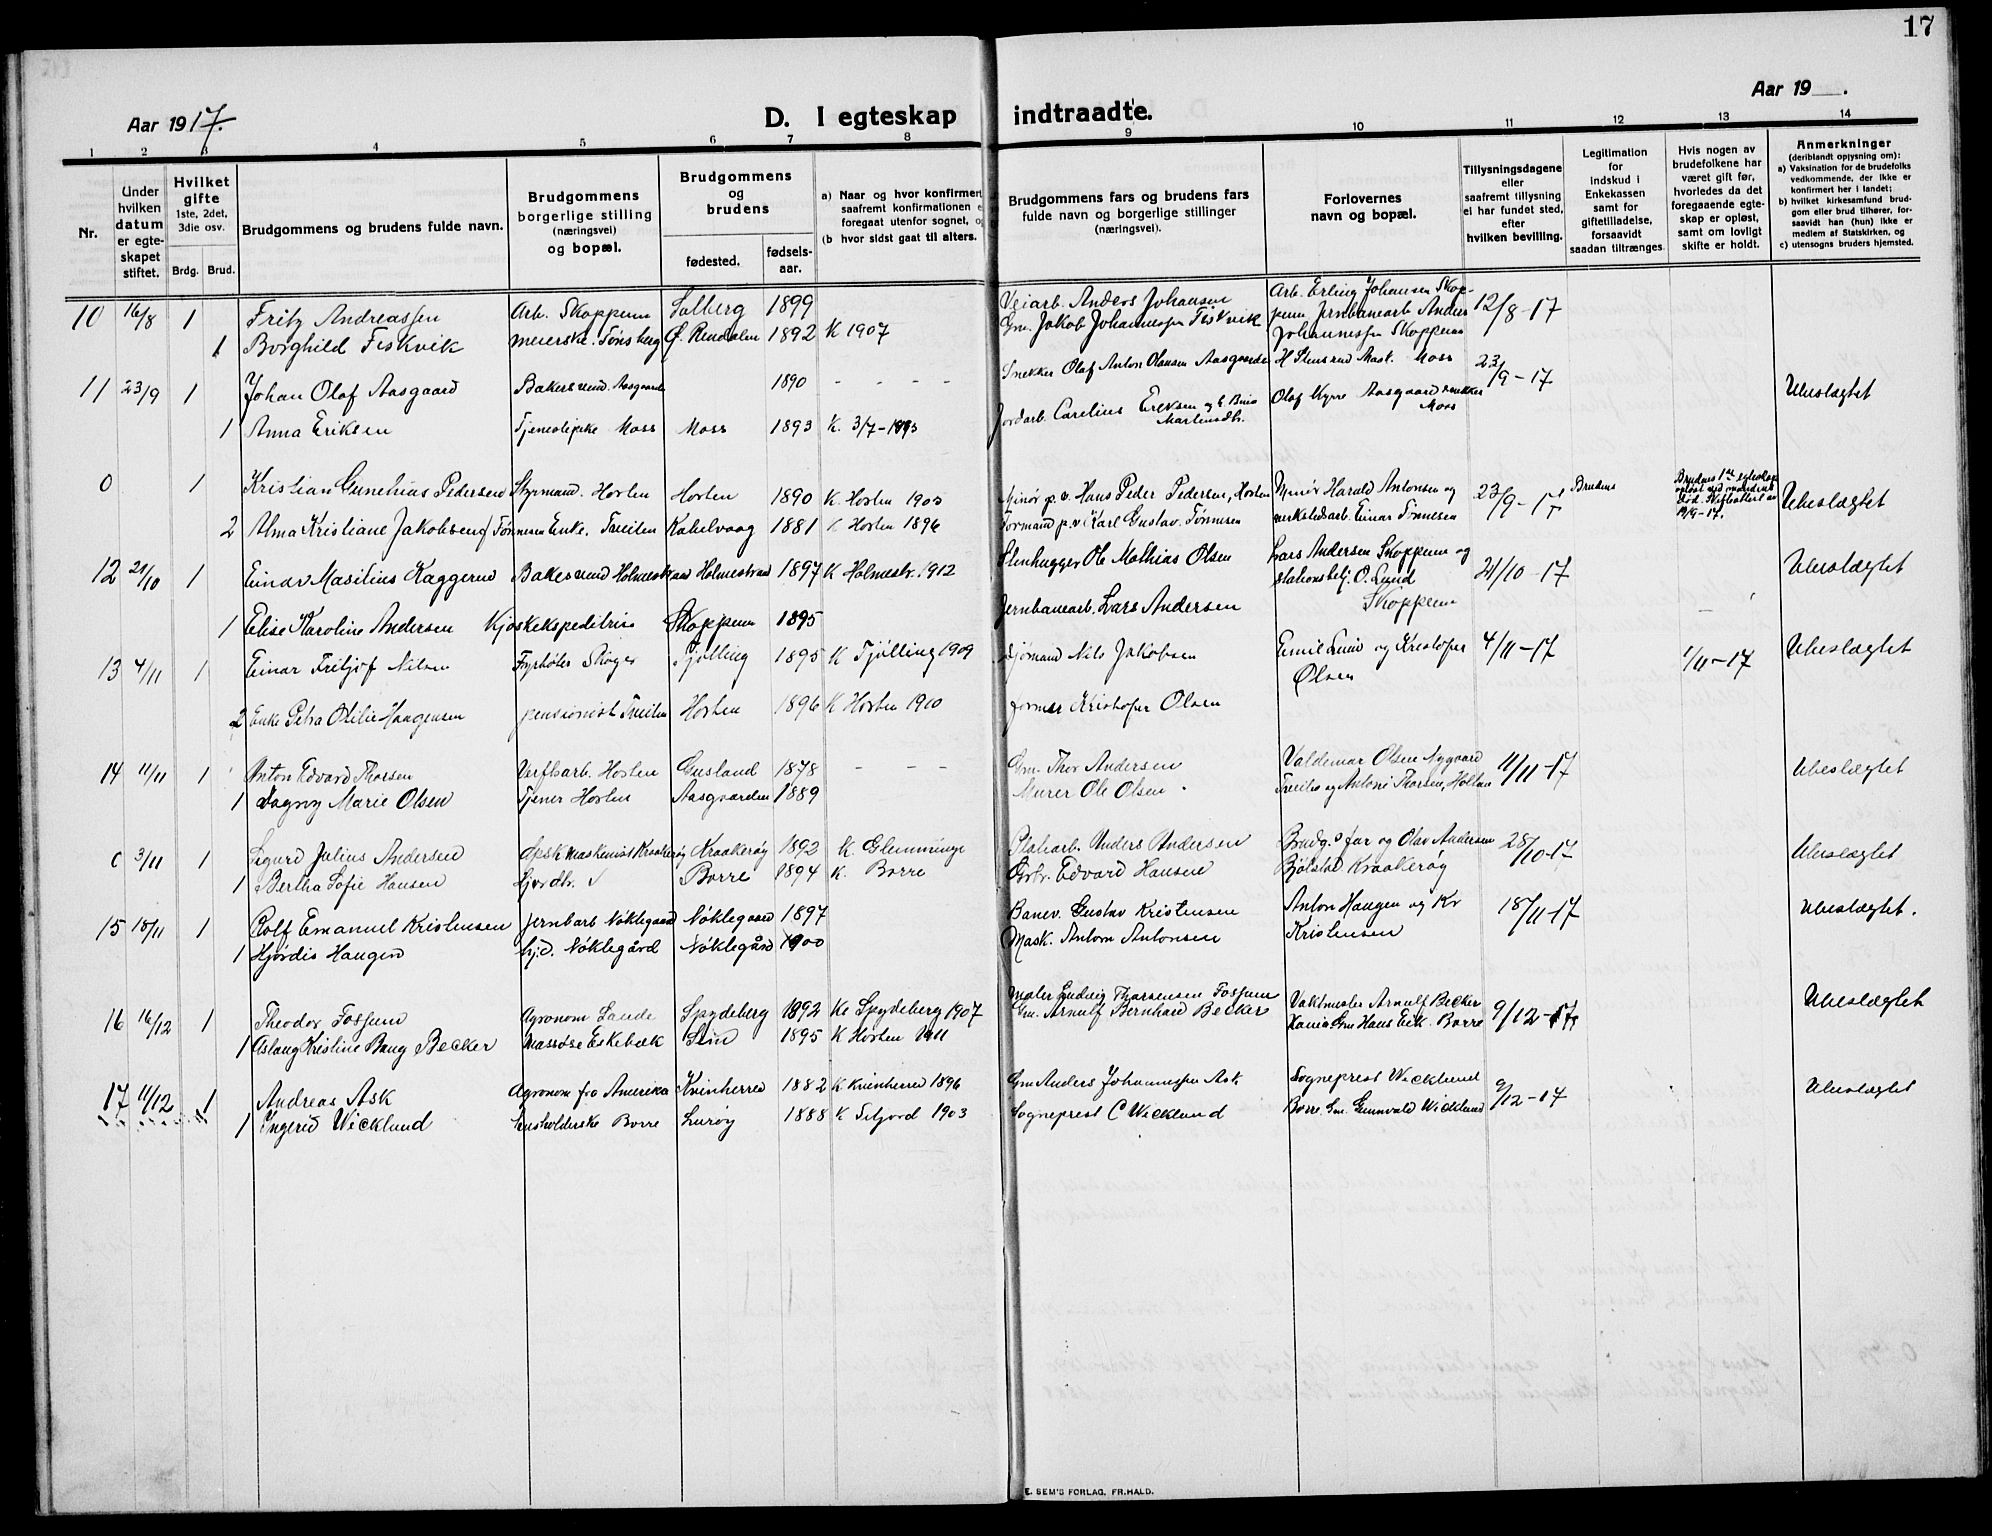 17
Aar 1917.
D. I egteskap indtraadte.
Aar 19__.
1 2 3 4 5 6 7 8 9 10 11 12 13 14
Nr.
Under hvilken datum er egteskapet stiftet.
Hvilket gifte
1ste, 2det, 3die osv.
Brdg. Brud.
Brudgommens og brudens fulde navn.
Brudgommens borgerlige stilling (næringsvei) og bopæl.
Brudgommens og brudens
fødested.
fødsels-aar.
a) Naar og hvor konfirmert
saafremt konfirmationen e
foregaat utenfor sognet, og
(b hvor sidst gaat til alters.
Brudgommens fars og brudens fars
fulde navn og borgerlige stillinger
(næringsvei).
Forlovernes
navn og bopæl.
Tillysningsdagene
eller
saafremt tillysning
ei har fundet sted,
efter
hvilken bevilling.
Legitimation
for
indskud i
Enkekassen
samt for
giftetilladelse,
forsaavidt
saadan tiltrænges.
Hvis nogen av
brudefolkene har
været gift før,
hvorledes da det
foregaaende egte-
skap er opløst,
samt om lovligt
skifte er holdt.
Anmerkninger
(deriblandt opjysning om):
a) Vaksination for de brudefolks
vedkommende, der ikke er
konfirmert her i landet;
b) hvilket kirkesamfund brud-
gom eller brud tilhører, for-
saavidt han (hun) ikke er
medlem af Statskirken, og
c) utensogns bruders hjemsted.
10 16/8 1 Fritz Andreassen Arb. Skoppum Solberg 1899 Veiarb. Anders Johansen Arb. Erling Johansen Skop-
pum Jernbanearb Anders 12/8-17
1 Borghild Fiskvik meierske. Tønsberg Ø. Rendalen 1892 K 1907 Gm. Jakob Johannessen Fiskvik Johannessen Skoppum
11 23/9 1 Johan Olaf Aasgaard Bakersvend. Aasgaarden 1890 - - - - Snekker Olaf Anton Olausen Aasgaarden H Stensrud Mask. Moss 23/9-17 Ubeslægtet
1 Anna Eriksen Tjenestepike Moss Moss 1893 K. 3/7- Jordarb. Carelius Eriksen Olaf Kyrre Aasgaard snekker
Moss
0 1 Kristian Pedersen Styrmand. Horten Horten 1890 K. Horten 1905 Minør p.v. Hans Peder Pedersen, Horten Minør Harald Antonsen og 23/9-17 Brudens Ubeslægtet
2 Alma Kristiane Jakobsen f Tønnesen Enke. Tveiten Kabelvaag 1881 K Horten 1896 Formand p.v Karl Gustav. Tønnesen verkstedsarb. Einar Tønnesen
12 21/10 1 Einar Masilius Kaggerud Bakersvend Holmestrand Holmestrand 1897 K Holmestr. 1912 Stenhugger Ole Mathias Olsen Lars Andersen Skoppum og
stationsbetj. O. Lund 21/10-17 Ubeslægtet
1 Elise Karoline Andersen Kjoskekspeditrise Skoppum 1895 Jernbanearb. Lars Andersen Skoppum
13 4/11 1 Einar Fritjof Nilsen Fyrbøter Skoger Tjølling 1895 K Tjølling 1909 Sjømand Nils Jakobsen Emil Lund og Kristofer 4/11-17 1/11-17 Ubeslægtet
Olsen
2 Enke Petra Otilie Haagensen pensionist Tveiten Horten 1896 K Horten 1910 former Kristofer Olsen
14 11/11 1 Anton Edvard Thorsen Verftsarb. Horten Gusland 1878 - - - Gm. Thor Andersen Valdemar Olsen Nygaard 11/11-17 Ubeslægtet
1 Dagny Marie Olsen Tjener Horten Aasgaarden 1889 Murer Ole Olsen. Tveiten og Antoni Thorsen, Holtan
0 3/11 1 Sigurd Julius Andersen Maskenist Kraakerøy Kraakerøy 1892 K. Glemminge Platearb. Anders Andersen Brudg.s far og Olav Andersen 28/10-17 Ubeslægtet
1 Bertha Sofie Hansen Borre 1894 K. Borre Gbr. Edvard Hansen Bjølstad Kraakerøy
15 18/11 1 Rolf Emanuel Kristensen Jernbarb Nøklegaard Nøklegaard 1897 Banev. Gustav Kristensen Anton Haugen og Kr 18/11-17 Ubeslægtet.
1 Hjørdis Haugen hj.d. Nøklegård Nøklegård 1900 Mask. Anton Antonsen Kristensen
16 16/12 1 Theodor Fossum Agronom Sande Spydeberg 1892 K Spydeberg 1907 Maler Ludvig Thorsensen Fossum Vaktmester Arnulf Becker 9/12-17 Ubeslægtet
1 Aslaug Kristine Bang Becker Massøse Eskebæk 1895 K Horten 1911 Gm. Arnulf Bernhard Becker Gm Hans Eik. Borre
17 11/12 1 Andreas Ask Agronom fra Amerika Kvinherred 1882 K Kvinherred 1896 Gm Anders Johannessen Ask Sogneprest Wicklund 9/12-17 Ubeslægtet
1 Ingerid Wicklund husholderske Borre Lurøy 1888 K Seljord 1903 Sogneprest C Wicklund Borre. Gm. Gunnvald Wicklund
E. SEM'S FORLAG, FR.HALD.